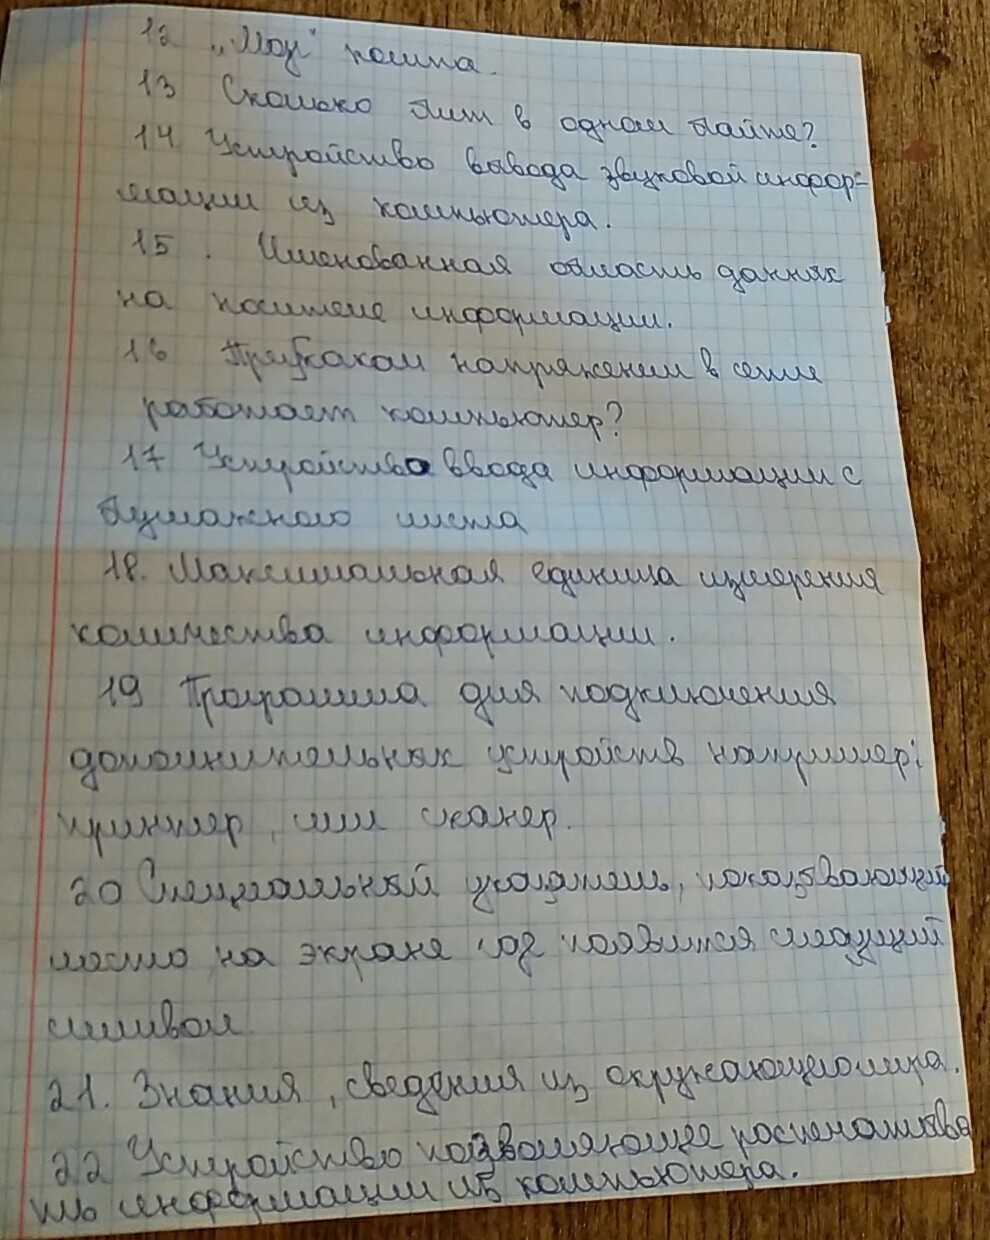 12 „Мозг" компа.
13 Сколько бит в одном байте?
14. Устройство вывода звуковой инфор-
мации из компьютера.
15. Именованная область данных
на носителе информации.
16 При каком напряжении в сети
работает компьютер?
17 Устройство ввода информации с
бумажного листа
18. Максимальная единица измерения
количества информации.
19 Программа для подключения
дополнительных устройств например:
принтер, или сканер.
20 Специальный указатель, показывающий
место на экране где появится следущий
символ
21. Знания, сведения из окружающего мира.
22 Устройство позволяющее распечатыва
ть информации из компьютера.